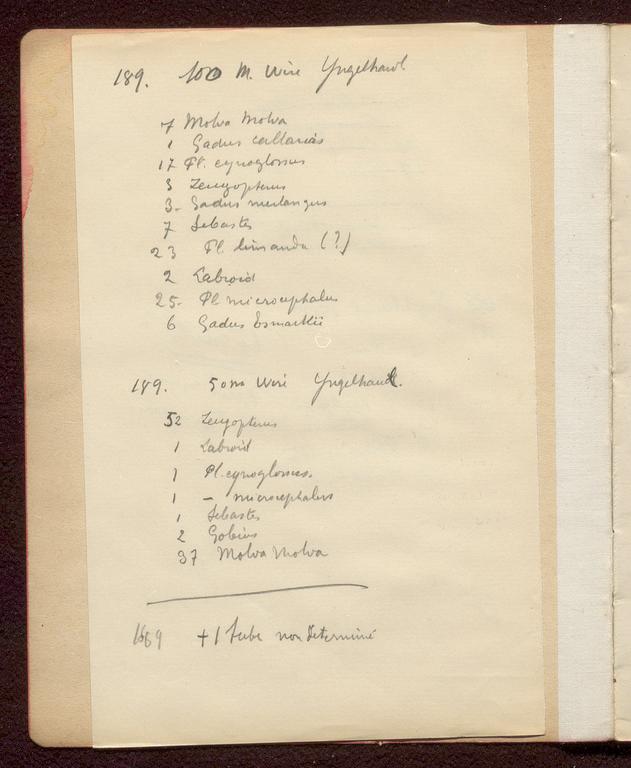 189. 100 M. Wire Yngelhaavl
7 Molva Molva
1 Gadus callarias
17 Pl. cynoglossus
3 Zeugopterus
3- Gadus merlangus
7 Sebastes
23 Pl. limanda (?)
2 Labroid
25- Pl microcephalus
6 Gadus Esmarkii
189. 50m Wire Yngelhaavl.
52 Zeugopterus
1 Labroid
1 Pl. cynoglossus.
1 - microcephalus
1 Sebastes
2 Gobius
37 Molva Molva
+ 1 tube non determiné